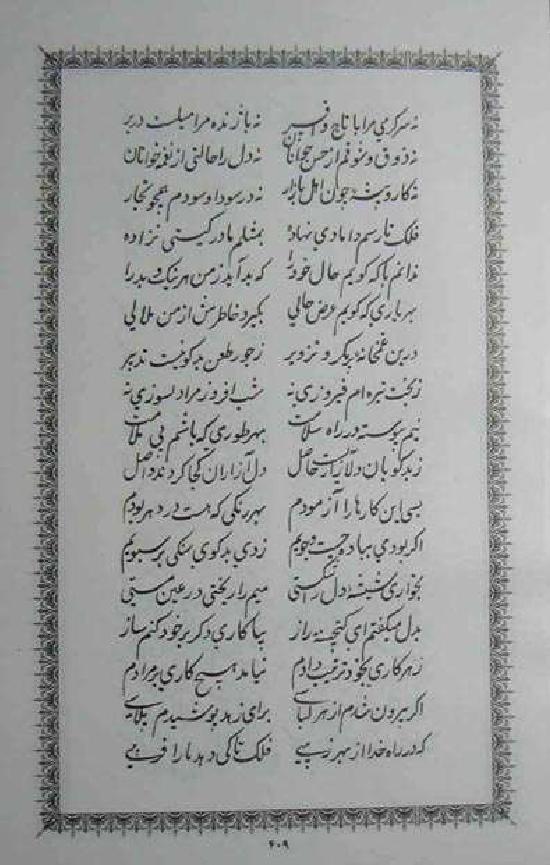 نه سرگرمی مرا با تاج و افسر نه بازنده مرا مبلت در بر
نه ذوق و شوقم از حسن جوانان نه دل را حالتی از نغمه خوانان
نه کار و پیشه چون اهل بازار نه در سودا و سودم همچو تجار
فلک نارسم دامادی نهاده بمثلم مادر گیتی نزاده
ندانم با که گویم حال خود را که بد آید ز من هر نیک و بد را
بهر یاری که گویم عرض حالی بگیرد خاطرش از من ملالی
درین غمخانه دیگر و تزویر ز جور طعن بدگو نیست تدبیر
ز بخت تیره ام فیروزی نه شب افروز مراد لسوزی نه
نیم پیوسته در راه سلامت بهر طوری که باشم بی ملامت
ز بدگویان دلازاریست حاصل دل آزاران کجا کردند
بسی این کارها را آزمودم بهر رنگی که هست در دهر بودم
اگر بودی بباده جست و جویم زدی بدگوی سنگی بر سبویم
بخواری شیشه دل را شکستی میم را ریختی در عین مستی
بدل میگفتم ای گنجینه راز بیا کاری دگر بر خود کنم ساز
ز هر کاری بخود ترتیب دادم نیامد هیچ کاری بر مرادم
اگر بیرون شدم از هر لباسی برای زهد پوشیدم
که در راه خدا از مهر زیبی فلک تا کی دهد ما را فریبی
۲۰۹